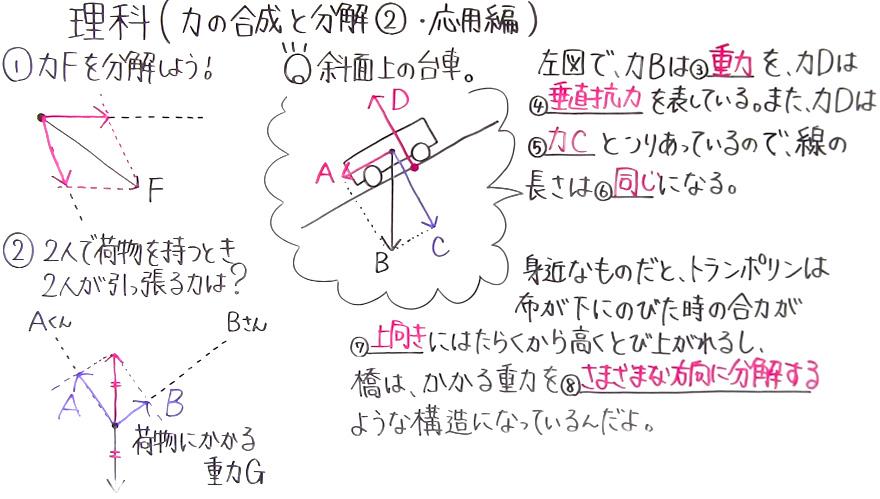 理科(力の合成と分解②・応用編)
①力Fを分解しよう!
F
②2人で荷物を持つとき
2人が引っ張る力は?
Aくん
Bさん
A
B
荷物にかかる
重力G
斜面上の台車。
D
A
B
C
左図で、力Bは③重力を、力Dは
④垂直抗力を表している。また、力Dは
⑤力Cとつりあっているので、線の
長さは⑥同じになる。
身近なものだと、トランポリンは
布が下にのびた時の合力が
⑦上向きにはたらくから高くとび上がれるし、
橋は、かかる重力を⑧さまざまな方向に分解する
ような構造になっているんだよ。